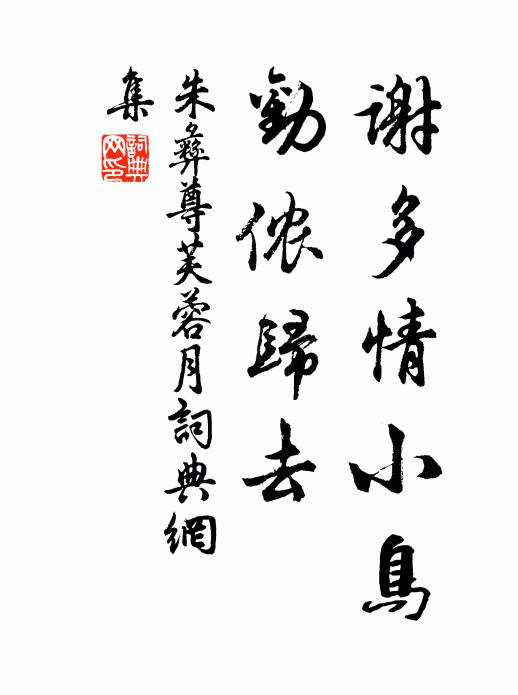 謝多情小鳥
勸侬歸去
朱彝尊芙蓉月詞典網
集
詞典
网印